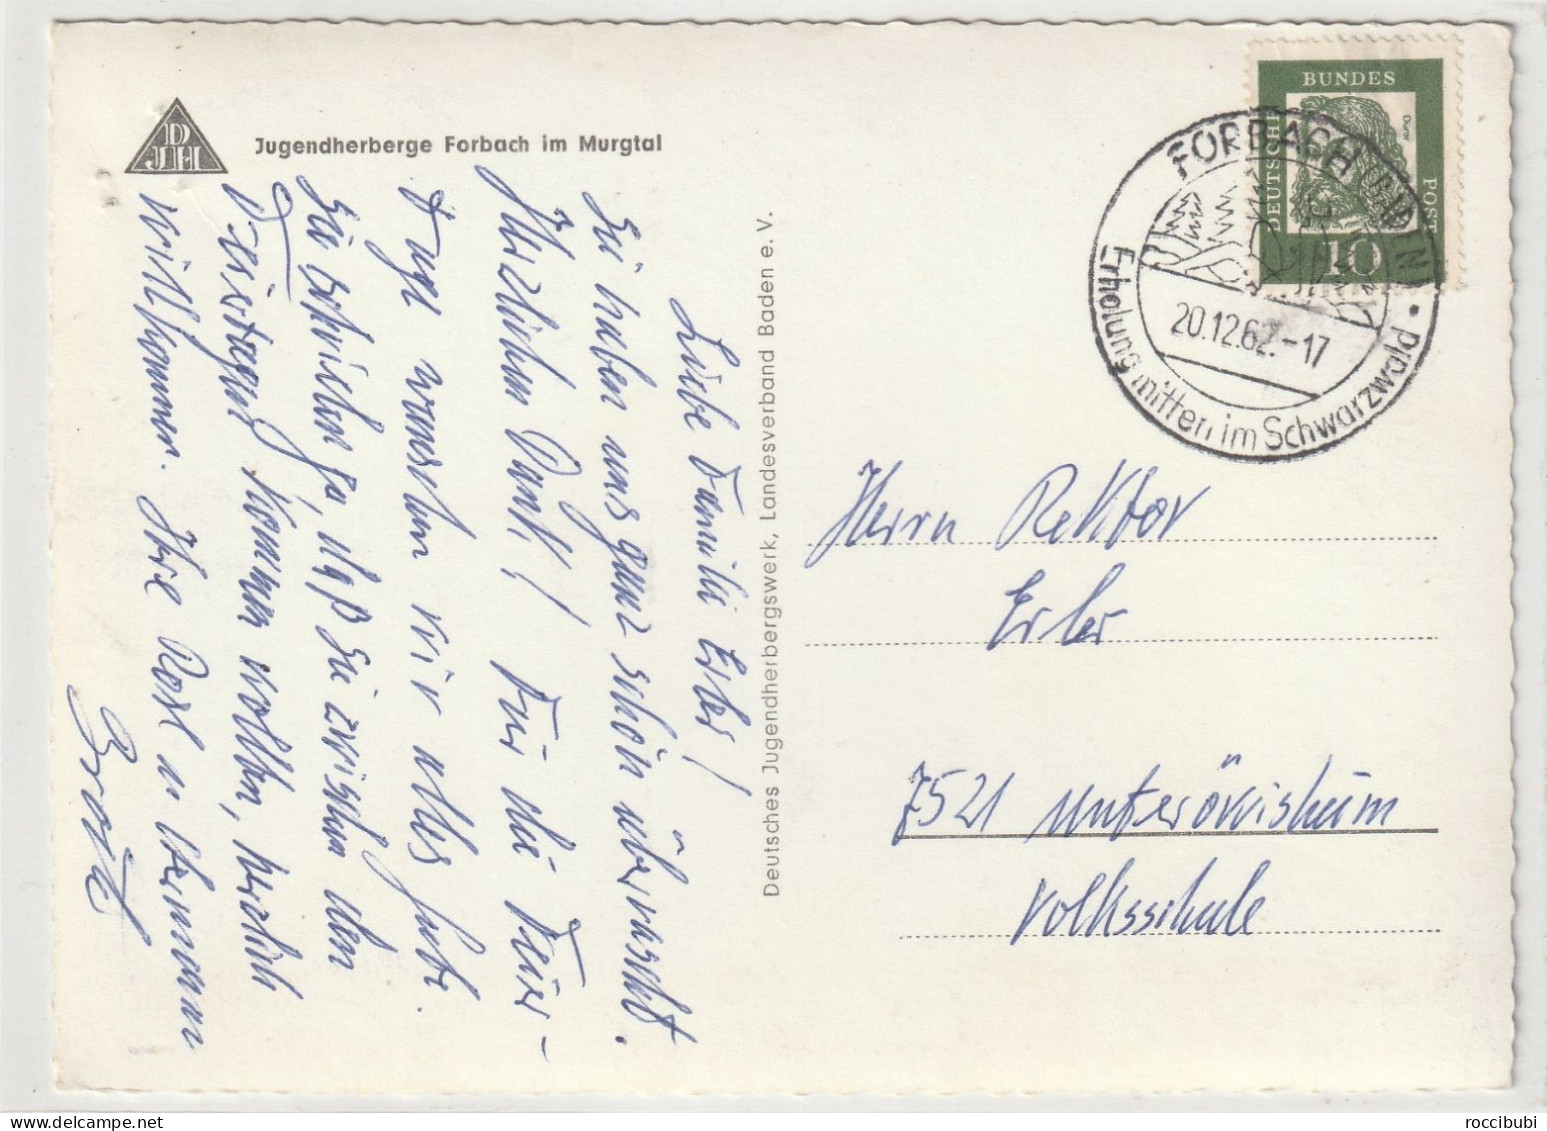 DJH
Jugendherberge Forbach im Murgtal
Liebe Familie Erler!
Sie haben uns ganz schön überrascht.
Herzlichen Dank! Für die Feier-
tage wünschen wir alles Gute.
Sie schreiben ja, daß Sie zwischen den
Feiertagen kommen wollen, herzlich
willkommen. Ihre Rosl u. Hermann
Deutsches Jugendherbergswerk, Landesverband Baden e. V.
DEUTSCHE BUNDES POST
Dürer
10
FORBACH (BADEN)
20.12.62.-17
Erholung mitten im Schwarzwald
Herrn Rektor
Erler
7521 Unteröwisheim
Volksschule
delcampe.net
roccibubi